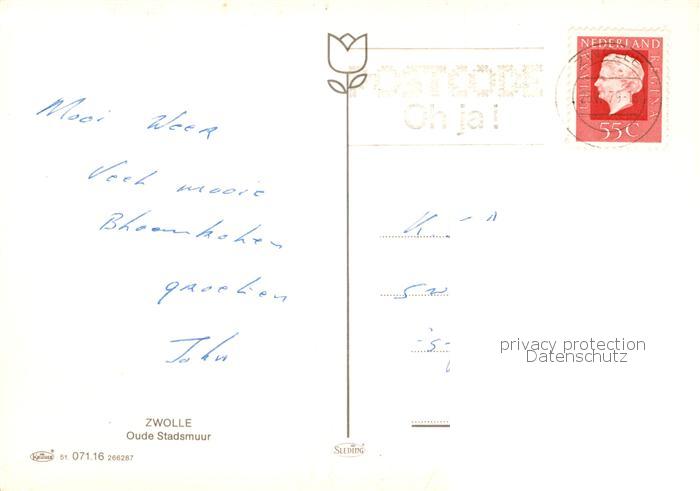 NEDERLAND
JULIANA REGINA
55 C
POSTCODE
Oh ja!
Mooi Weer
Veel mooie
Bloemkolen
groeten
John
K.
sw
-s-
privacy protection
Datenschutz
ZWOLLE
Oude Stadsmuur
KRÜGER
51 071.16 266287
SLEDING